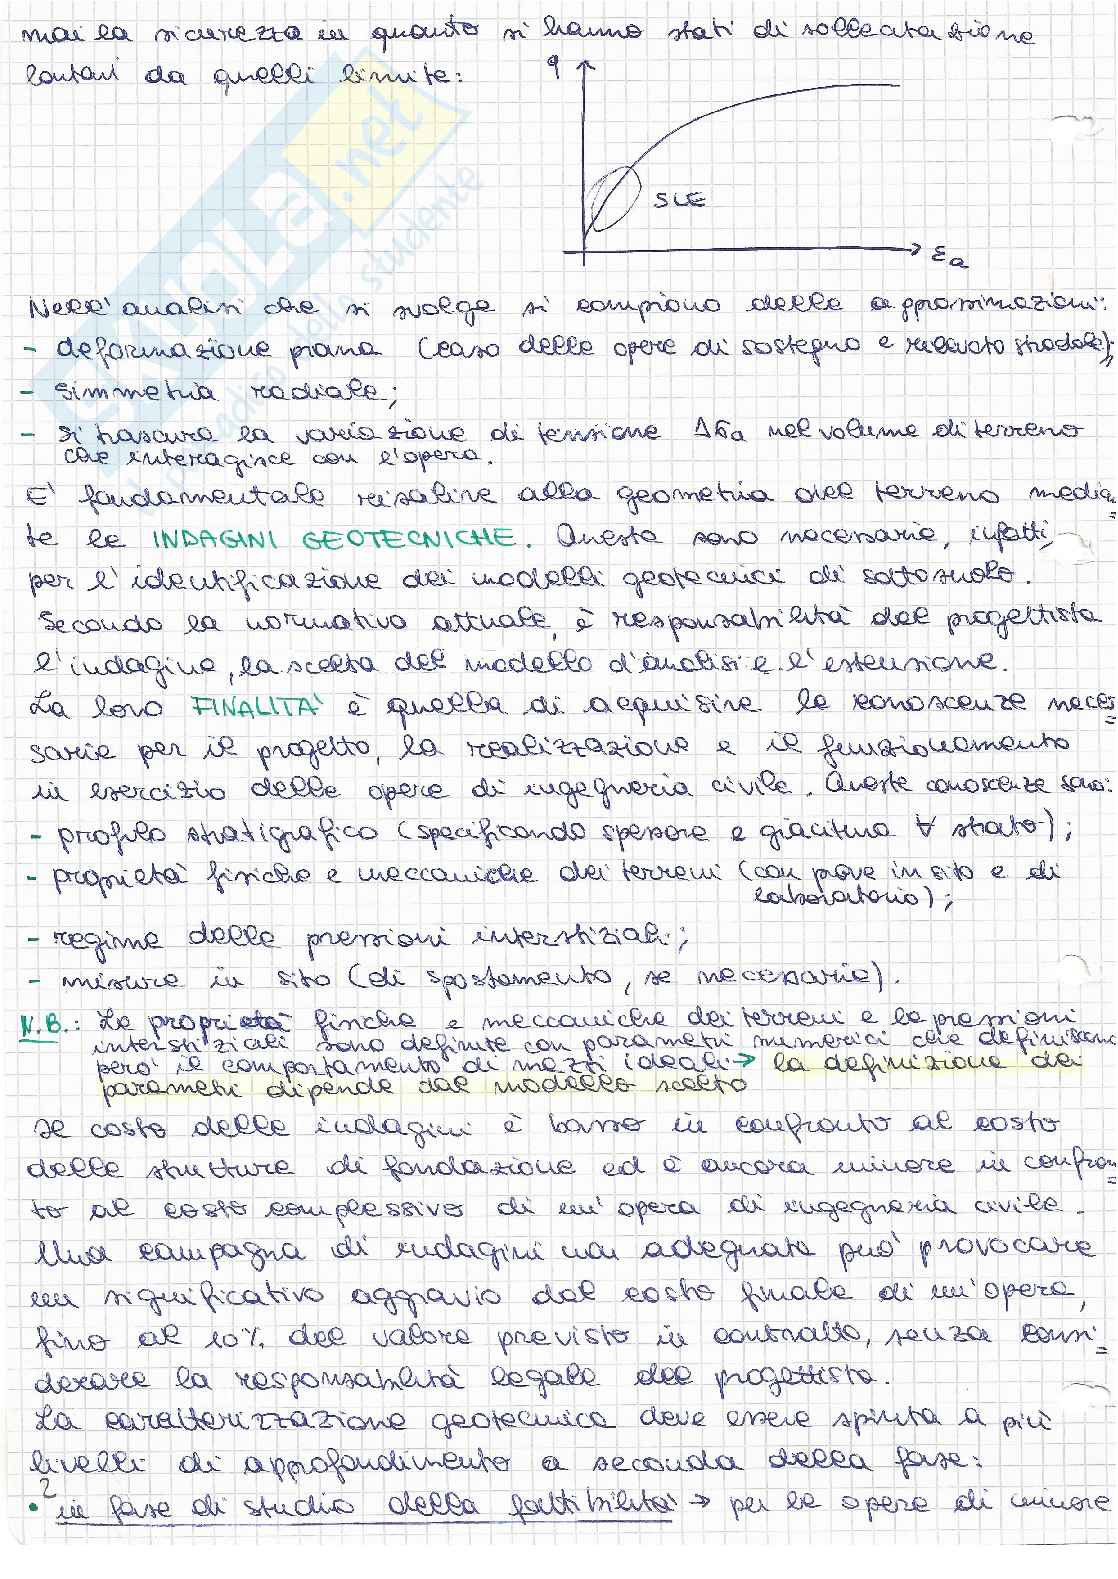 mai la sicurezza in quanto si hanno stati di sollecitazione
lontani da quelli limite:
q
SLE
εa
Nell'analisi che si svolge si compiono delle approssimazioni:
- deformazione piana (caso delle opere di sostegno e rilevato stradale);
- simmetria radiale;
- si trascura la variazione di tensione Δσa nel volume di terreno
che interagisce con l'opera.
E' fondamentale risalire alla geometria del terreno media=
te le INDAGINI GEOTECNICHE. Queste sono necessarie, infatti,
per l'identificazione dei modelli geotecnici di sottosuolo.
Secondo la normativa attuale, è responsabilità del progettista
l'indagine, la scelta del modello d'analisi e l'estensione.
La loro FINALITA' è quella di acquisire le conoscenze neces=
sarie per il progetto, la realizzazione e il funzionamento
in esercizio delle opere di ingegneria civile. Queste conoscenze sono:
- profilo stratigrafico (specificando spessore e giacitura ∀ strato);
- proprietà fisiche e meccaniche dei terreni (con prove in sito e di
laboratorio);
- regime delle pressioni interstiziali;
- misure in sito (di spostamento, se necessarie).
N.B.: Le proprietà fisiche e meccaniche dei terreni e le pressioni
interstiziali sono definite con parametri numerici che definiscono
però il comportamento di mezzi ideali → la definizione dei
parametri dipende dal modello scelto
Il costo delle indagini è basso in confronto al costo
delle strutture di fondazione ed è ancora minore in confron=
to al costo complessivo di un'opera di ingegneria civile.
Una campagna di indagini non adeguata può provocare
un significativo aggravio del costo finale di un'opera,
fino al 10% del valore previsto in contratto, senza consi=
derare la responsabilità legale del progettista.
La caratterizzazione geotecnica deve essere spinta a più
livelli di approfondimento a seconda della fase:
2
• in fase di studio della fattibilità → per le opere di minore
SKUOLA.net